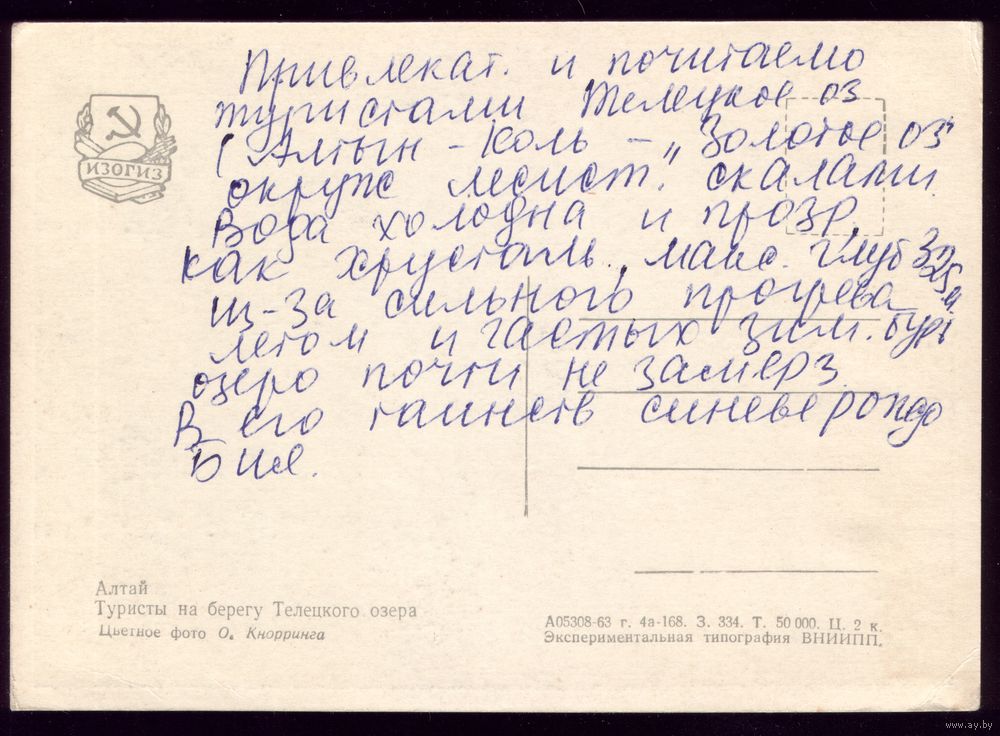 Привлекат. и почитаемо
туристами Телецкое оз
(Алтын - Коль - „Золотое оз"
окруж лесист. скалами.
Вода холодна и прозр.
как хрусталь, макс. глуб 325 м.
из-за сильного прогрева
летом и частых зим. бурь
озеро почти не замерз.
В его таинств синеве
Бия.
ИЗОГИЗ
Алтай
Туристы на берегу Телецкого озера
Цветное фото О. Кнорринга
А05308-63 г. 4а-168. З. 334. Т. 50 000. Ц. 2 к.
Экспериментальная типография ВНИИПП.
www.ay.by